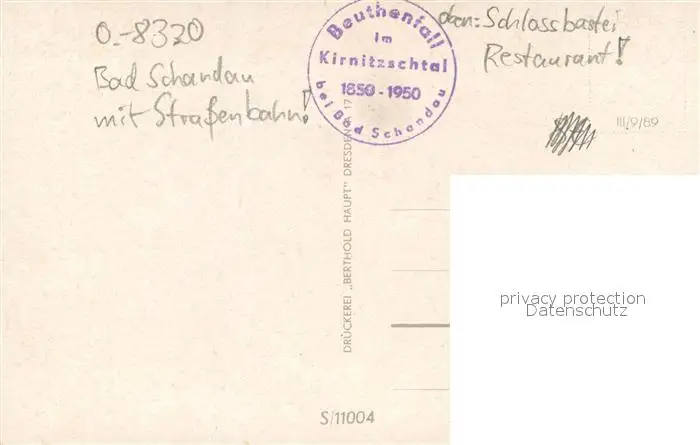 O.-8320
Bad Schandau
mit Straßenbahn!
Beuthenfall
im
Kirnitzschtal
1850-1950
bei Bad Schandau
oben: Schlossbastei
Restaurant!
III/9/89
DRUCKEREI „BERTHOLD HAUPT" DRESDEN 17
S/11004
privacy protection
Datenschutz